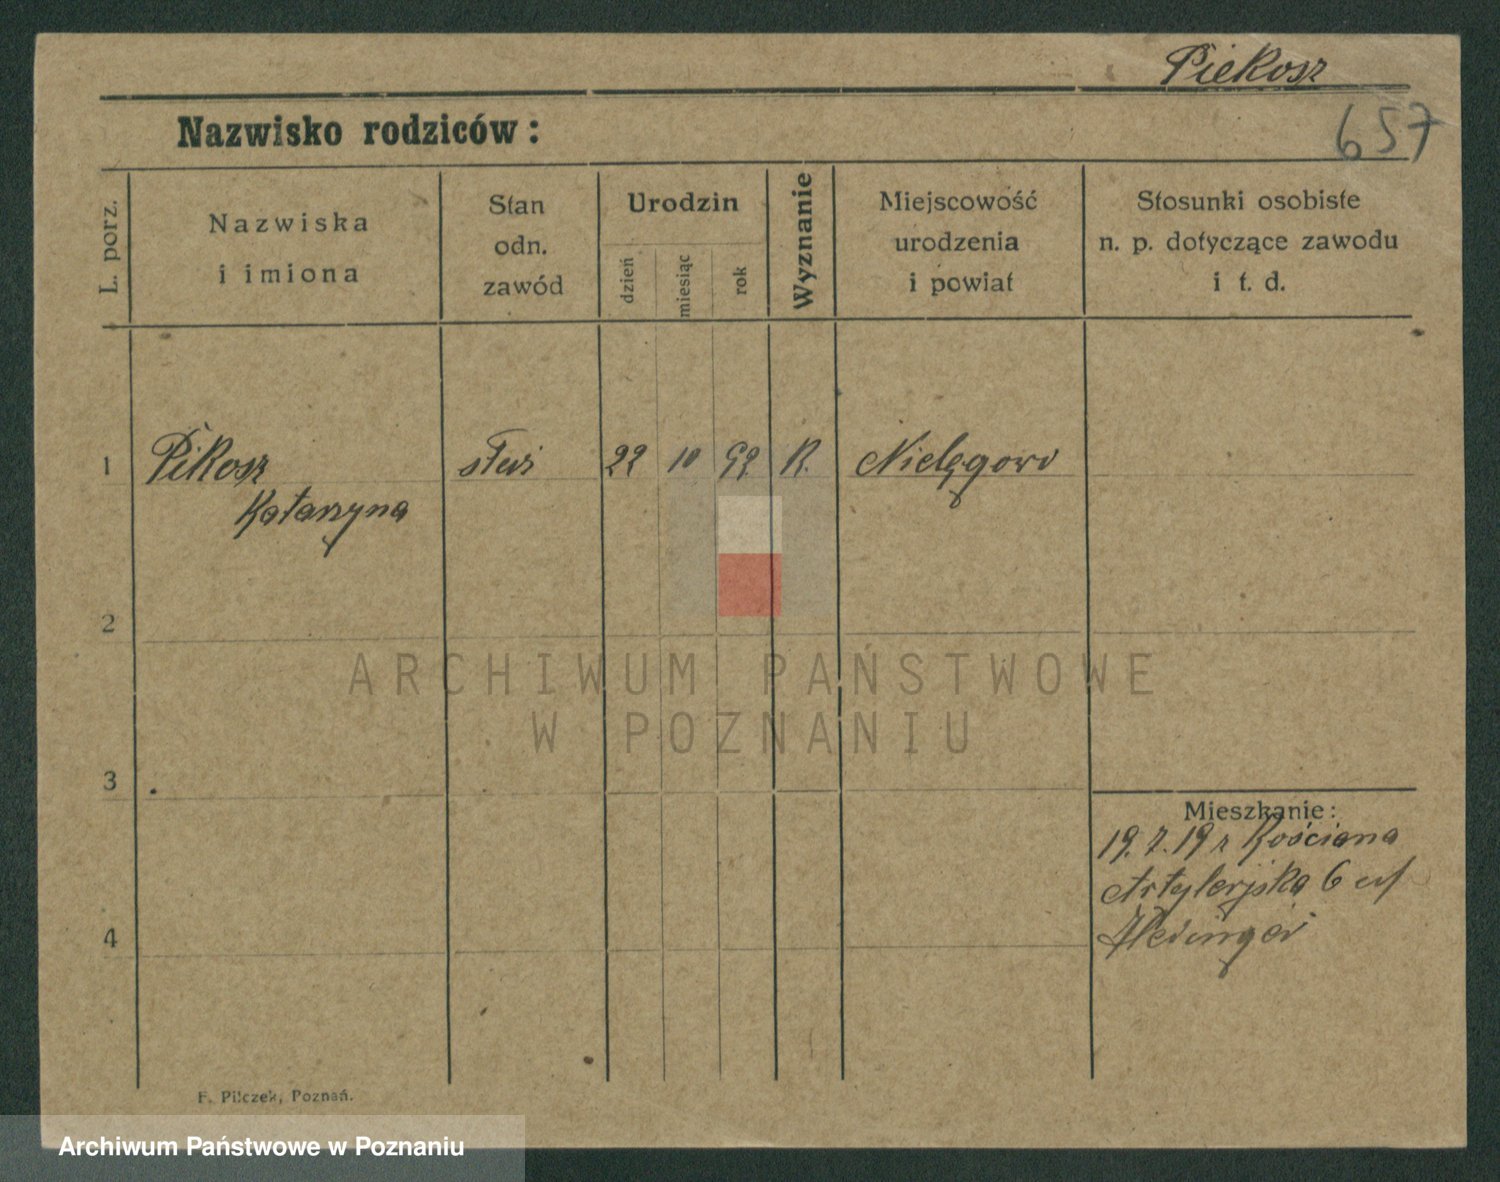 Piekosz
657
Nazwisko rodziców:
L. porz.
Nazwiska
i imiona
Stan
odn.
zawód
Urodzin
dzień
miesiąc
rok
Wyznanie
Miejscowość
urodzenia
i powiat
Stosunki osobiste
n. p. dotyczące zawodu
i t. d.
1
Pikosz
Katarzyna
służ
22
10
92
R.
Nielęgowo
2
ARCHIWUM PAŃSTWOWE
W POZNANIU
3
Mieszkanie:
19.7.19 z Kościana
Artyleryjska 6
4
F. Pilczek, Poznań.
Archiwum Państwowe w Poznaniu